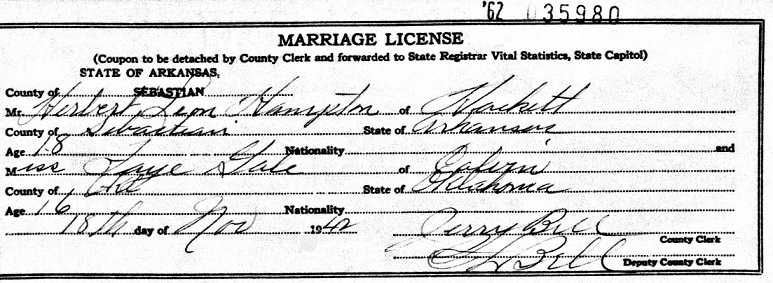 '62 035980
MARRIAGE LICENSE
(Coupon to be detached by County Clerk and forwarded to State Registrar Vital Statistics, State Capitol)
STATE OF ARKANSAS,
County of SEBASTIAN
Mr. Herbert Leon Hampton of Hackett
County of Sebastian State of Arkansas
Age 18 Nationality and
Miss Faye Gale of Calvin
County of State of Oklahoma
Age 16 Nationality
18th day of Nov 1942
Jerry Bell
County Clerk
Bell
Deputy County Clerk